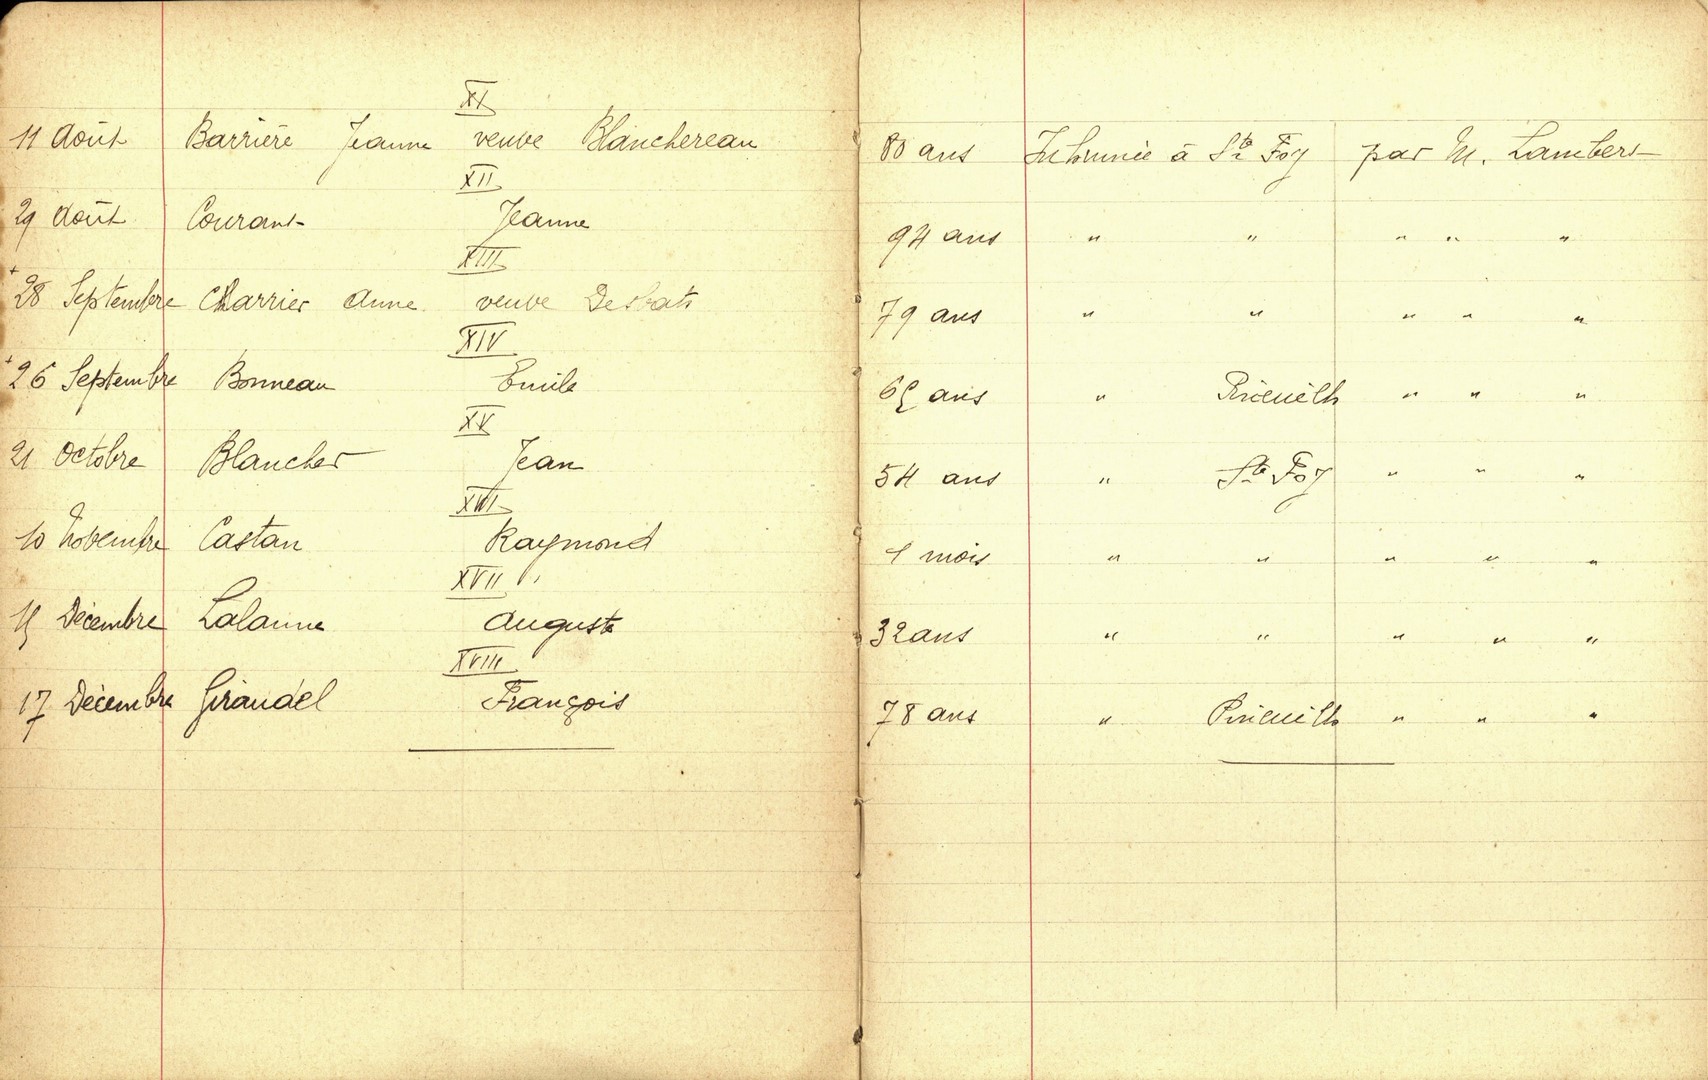 XI
11 Août Barrière Jeanne veuve Blanchereau 80 ans Inhumée à Ste Foy par M. Lambert
XII
29 Août Courant Jeanne 94 ans " " " " "
XIII
+ 28 Septembre Charrier Anne veuve Desbats 79 ans " " " " "
XIV
+ 26 Septembre Bonneau Emile 65 ans " Pineuilh " " "
XV
21 Octobre Blancher Jean 54 ans " Ste Foy " " "
XVI
10 Novembre Castan Raymond 1 mois " " " " "
XVII
15 Décembre Lalanne Auguste 32 ans " " " " "
XVIII
17 Décembre Giraudel François 78 ans " Pineuilh " " "